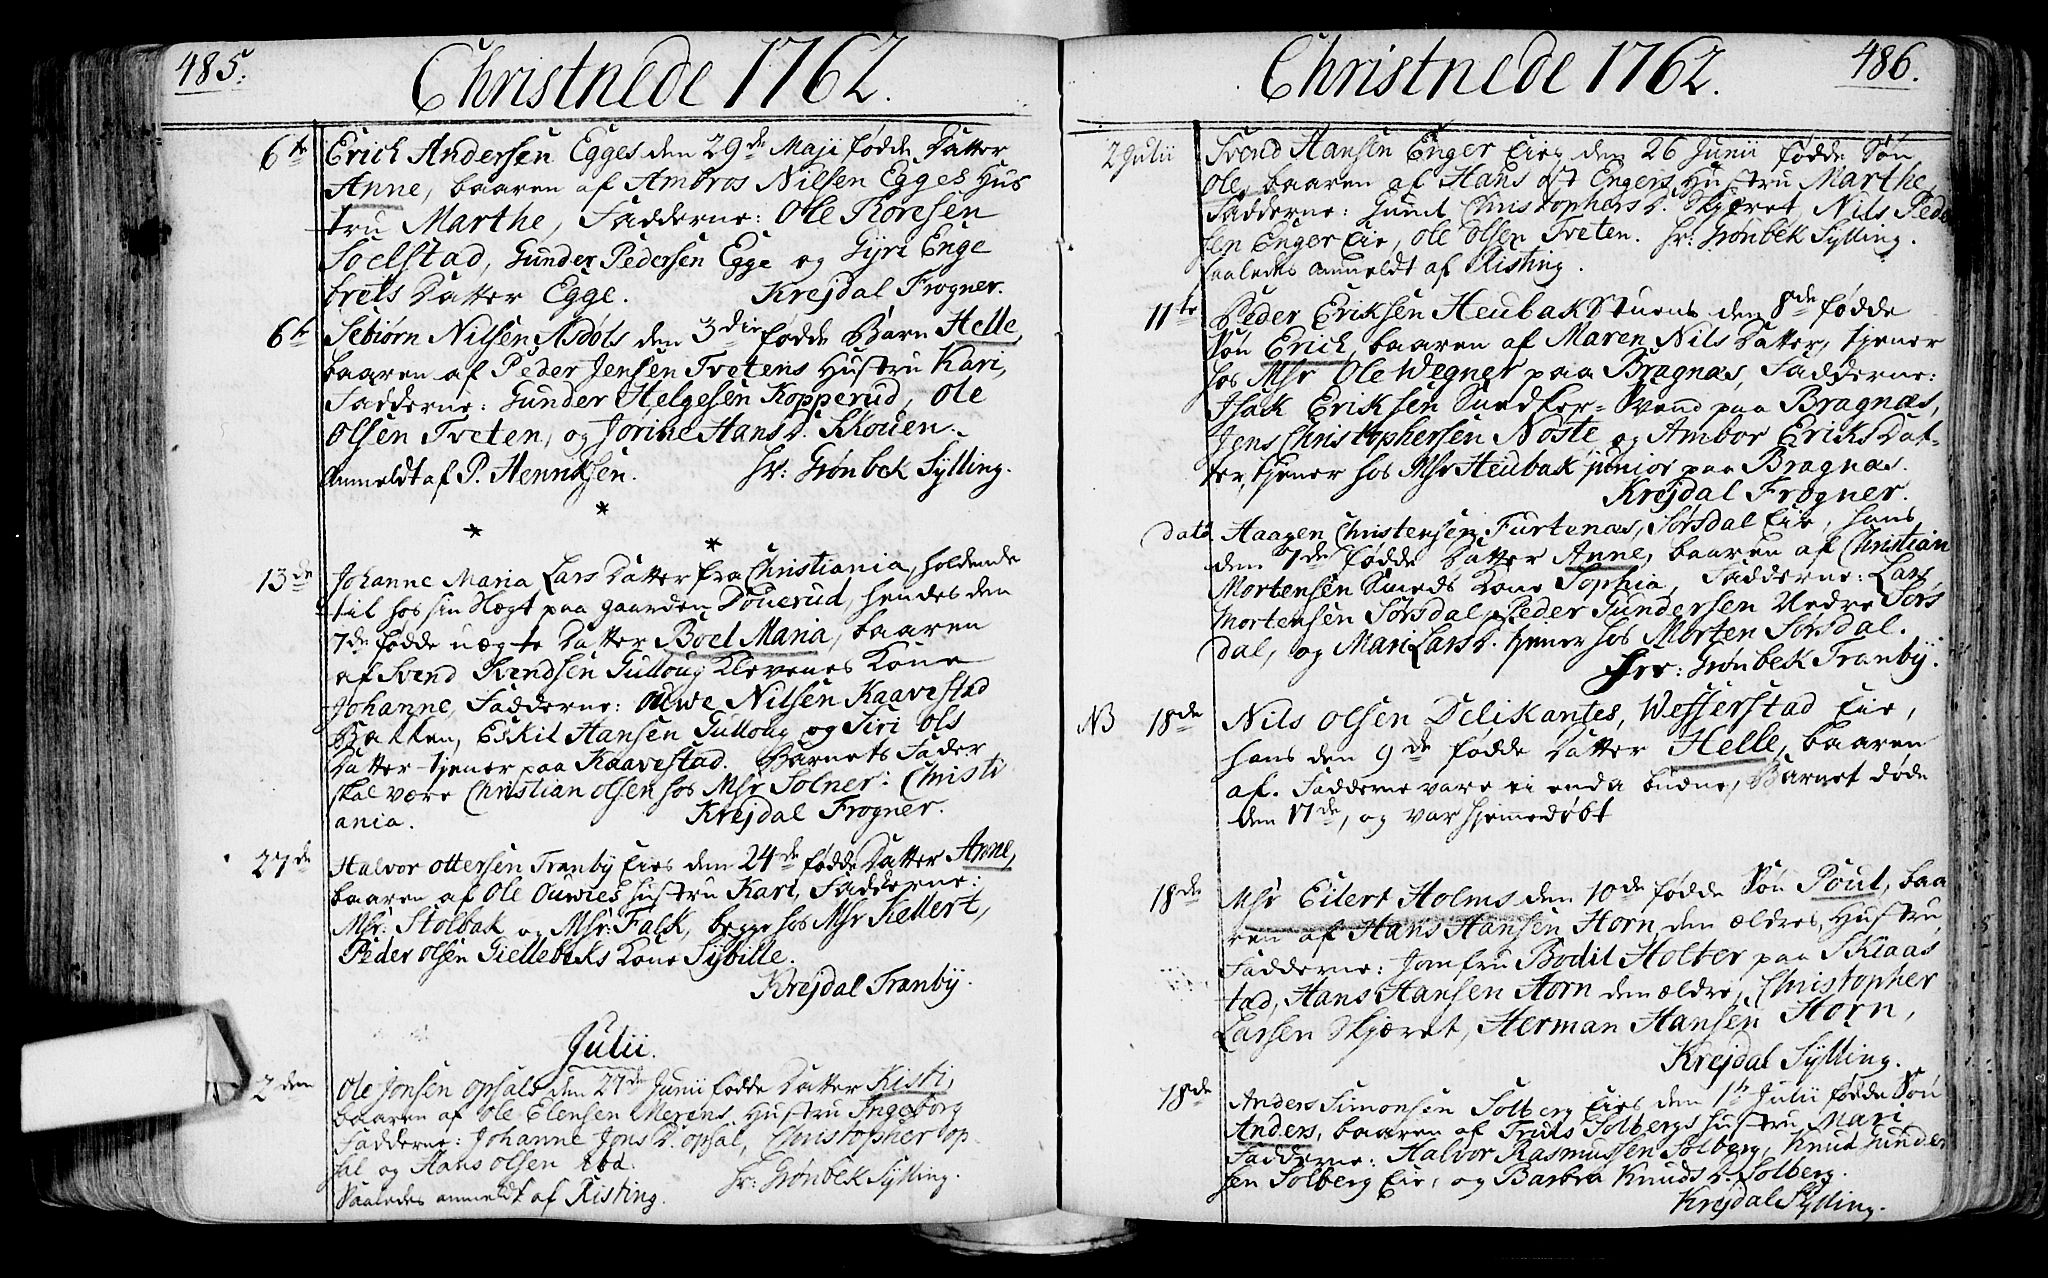 485.
Christnede 1762.
6te Erich Andersen Egges den 29de Maji fødde Datter
Anne, baaren af Ambros Nilsen Egges Hus
tru Marthe, Fadderne: Ole Roresen
Soelstad, Gunder Pedersen Egge og Gyri Enge
brets Datter Egge. Krejdal Frogner.
6te Sebiørn Nilsen Asdøls den 3die fødde Barn Helle,
baaren af Peder Jensen Tvetens Hustru Kari,
Fadderne: Gunder Helgesen Kopperud, Ole
Olsen Tveten, og Jørine Hans D. Skouen.
Anmeldt af P. Henriksen. Hr: Grønbek Sylling.
* * *
13de Johanne Maria Lars Datter fra Christiania, holdende
til hos sin Slegt paa gaarden Døuerud, hendes den
7de fødde uægte Datter Boel Maria, baaren
af Svend Svendsen Gulloug Klevenes Kone
Johanne, Fadderne: Ouwe Nilsen Kaavestad
Bakken, Eskil Hansen Gulloug og Siri Ols
Datter tjener paa Kaavestad. Barnets Fader
skal være Christian Olsen hos Msr Solner i Christi
ania. Krejdal Frogner.
27de Halvor Ottersen Tranby Eies den 24de fødde Datter Anne,
baaren af Ole Ouwres Hustru Kari, Fadderne:
Msr. Stolbak og Msr: Falk, begge hos Msr Kellert,
Peder Olsen Giellebeks Kone Sybille.
Krejdal Tranby.
Julii.
2den Ole Jonsen Opsals den 27de Junii fødde Datter Kisti,
baaren af Ole Elensen Merens Hustru Ingeborg
Fadderne: Johanne Jons D. Opsal, Christopher Op
sal og Hans Olsen ibd.
Saaledes anmeldt af Risting. Hr: Grønbek Sylling.
486.
Christnede 1762.
2 Julii Svend Hansen Enger Eies den 26 Junii fødde Søn
Ole, baaren af Hans Engers Hustru Marthe,
Fadderne: Christophers D. Skjæret, Nils Peder
sen Enger Eie, Ole Olsen Tveten. Hr: Grønbek Sylling.
saaledes anmeldt af Risting.
11te Peder Eriksen Heubak Stuens den 8de fødde
Søn Erich, baaren af Maren Nils Datter, tjener
hos Msr Ole Wegner paa Bragnæs, Fadderne:
Isak Eriksen Snedker-Svend paa Bragnæs,
Jens Christophersen Nøste og Ambor Eriks Dat-
ter, tjener hos Msr Heubak junior paa Bragnæs.
Krejdal Frogner.
dato Haagen Christensen Furtenæs, Sørsdal Eie, hans
den 7de fødde Datter Anne, baaren af Christian
Mortensen Smeds Kone Sophia, Fadderne: Lars
Mortensen Sørsdal, Peder Gundersen Nedre Sørs
dal, og Mari Lars D. tjener hos Morten Sørsdal.
Hr: Grønbek Tranby.
NB 18de Nils Olsen Delikantes, Wefferstad Eie,
hans den 9de fødde Datter Helle, baaren
af. Fadderne vare ei enda budne, Barnet døde
den 17de, og var hjemedøbt
18de Msr Eilert Holms den 10de fødde Søn Poul, baa
ren af Hans Hansen Horn den ældres, Hustru,
Fadderne: Jomfru Bodil Holter paa Sklaas
tad, Hans Hansen Horn den ældre, Christopher
Larsen Skjæret, Herman Hansen Horn,
Krejdal Sylling.
18de Anders Simonsen Solberg Eies den 1te Julii fødde Søn
Anders, baaren af Truls Solbergs Hustru Mari
Fadderne: Halvor Rasmussen Solberg, Knud Gunder
sen Solberg Eie, og Barbra Knuds D. Solberg.
Krejdal Sylling.